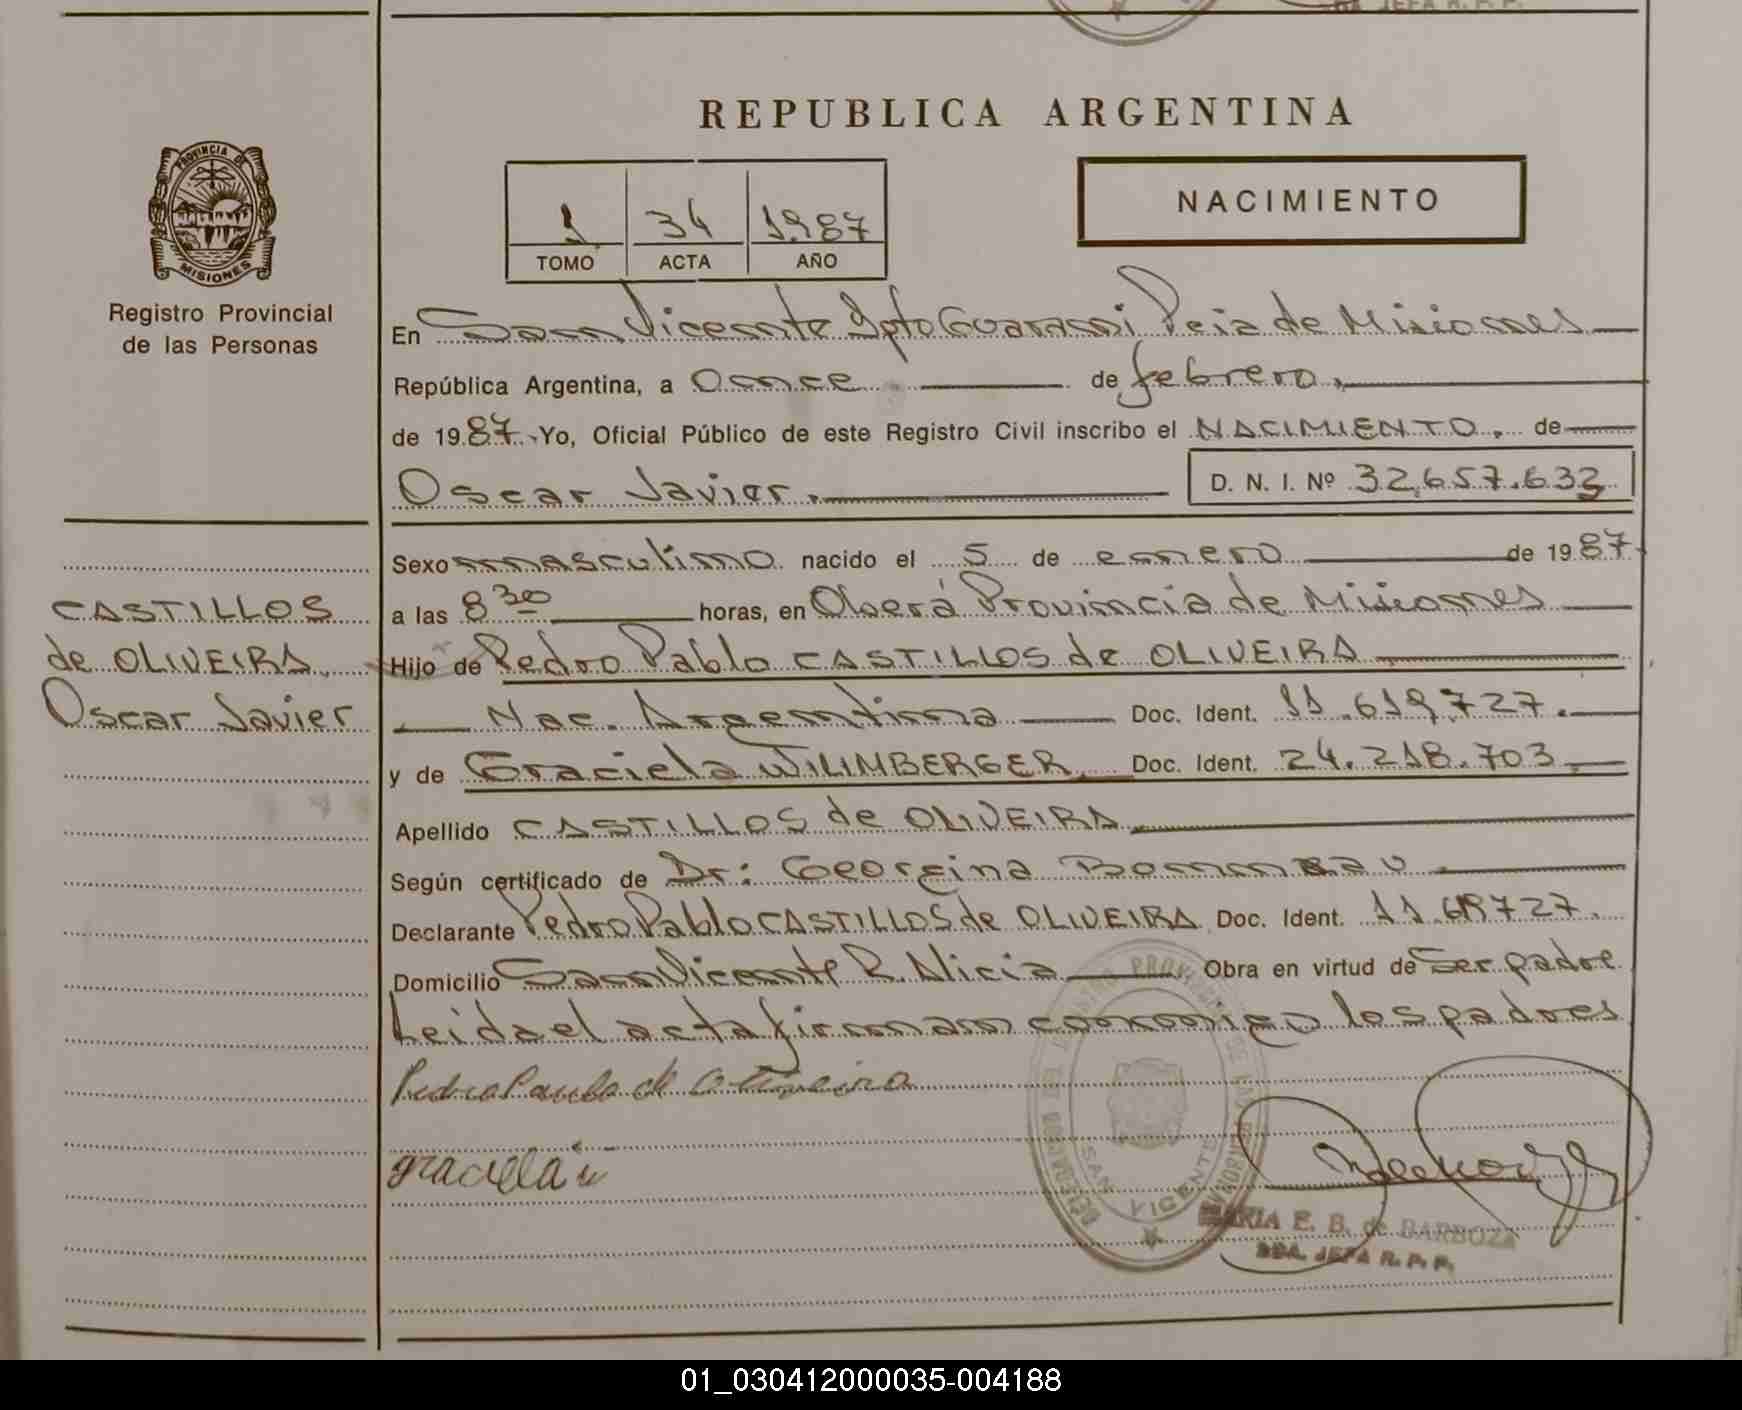 REPUBLICA ARGENTINA
PROVINCIA DE MISIONES
Registro Provincial
de las Personas
1 34 1987
TOMO ACTA AÑO
NACIMIENTO
En San Vicente Dpto Guarani Pcia de Misiones
República Argentina, a Once de febrero.
de 1987. Yo, Oficial Público de este Registro Civil inscribo el NACIMIENTO. de
Oscar Javier. D. N. I. Nº 32.657.633
Sexo masculino nacido el 5 de enero de 1987
a las 8 30 horas, en Oberá Provincia de Misiones
CASTILLOS
de OLIVEIRA
Oscar Javier
Hijo de Pedro Pablo CASTILLOS de OLIVEIRA
Nac. Argentina Doc. Ident. 11.619.727.
y de Graciela WILIMBERGER. Doc. Ident. 24.218.703.
Apellido CASTILLOS de OLIVEIRA
Según certificado de Dr: Georgina
Declarante Pedro Pablo CASTILLOS de OLIVEIRA Doc. Ident. 11.619727.
Domicilio San Vicente R. Alicia Obra en virtud de Ser padre
Leida el acta firman conmigo los padres
graciela w
SAN VICENTE
MARIA E. B. de BARBOZA
JEFA R. P. P.
01_030412000035-004188